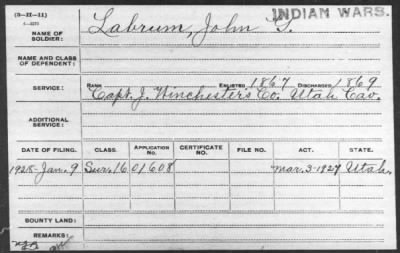 (3—H—11)
Labrum, John G. INDIAN WARS.
NAME OF SOLDIER:
NAME AND CLASS OF DEPENDENT:
SERVICE: RANK ENLISTED 1867 DISCHARGED 1869
Capt. J. Winchester's Co. Utah Cav.
ADDITIONAL SERVICE:
DATE OF FILING. CLASS. APPLICATION NO. CERTIFICATE NO. FILE NO. ACT. STATE.
1928-Jan. 9 Sur. 16 01608 Mar. 3-1927 Utah.
BOUNTY LAND:
REMARKS: